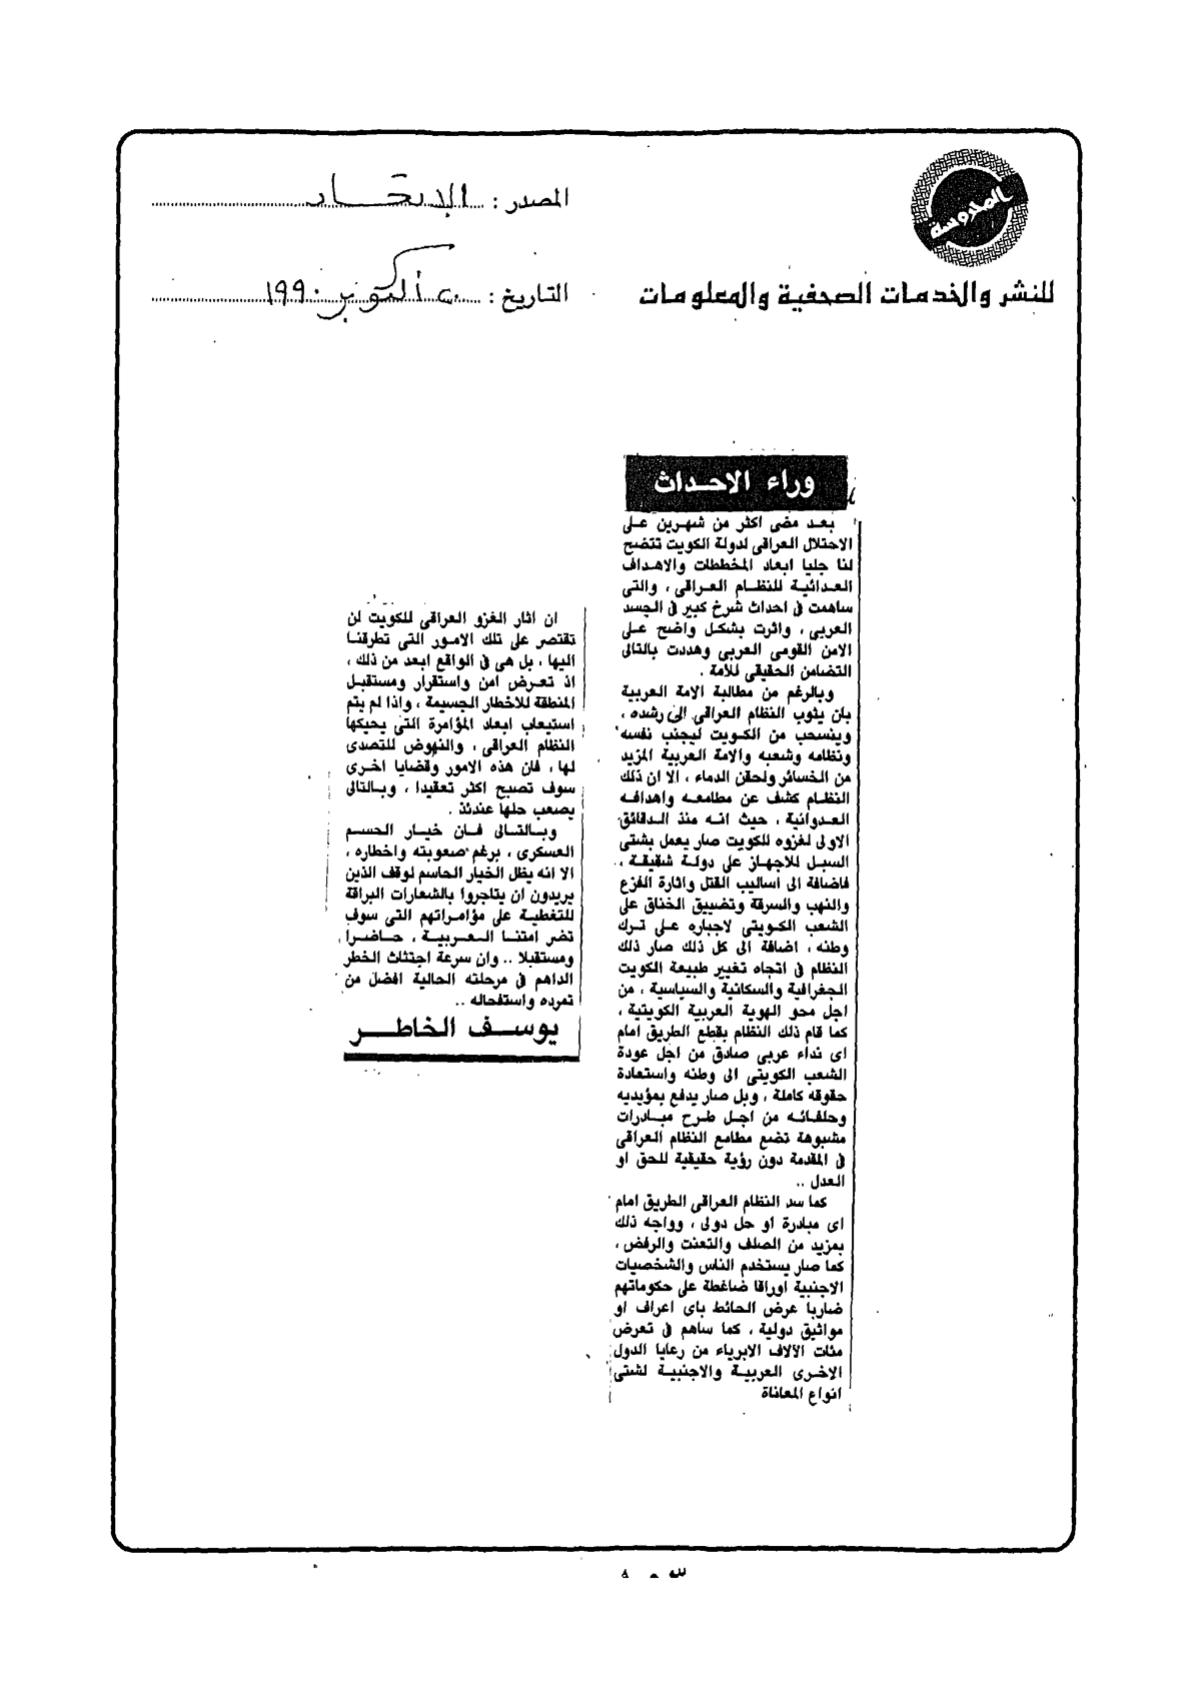 المحروسة
للنشر والخدمات الصحفية والمعلومات
المصدر : الاتحاد
التاريخ : ٢٠ أكتوبر ١٩٩٠
وراء الاحداث
بعد مضى اكثر من شهرين على
الاحتلال العراقى لدولة الكويت تتضح
لنا جليا ابعاد المخططات والاهداف
العدائية للنظام العراقى ، والتى
ساهمت فى احداث شرخ كبير فى الجسد
العربى ، واثرت بشكل واضح على
الامن القومى العربى وهددت بالتالى
التضامن الحقيقى للامة .
وبالرغم من مطالبة الامة العربية
بان يثوب النظام العراقى الى رشده ،
وينسحب من الكويت ليجنب نفسه
ونظامه وشعبه والامة العربية المزيد
من الخسائر ولحقن الدماء ، الا ان ذلك
النظام كشف عن مطامعه واهدافه
العدوانية ، حيث انه منذ الدقائق
الاولى لغزوه للكويت صار يعمل بشتى
السبل للاجهاز على دولة شقيقة ،
فاضافة الى اساليب القتل واثارة الفزع
والنهب والسرقة وتضييق الخناق على
الشعب الكويتى لاجباره على ترك
وطنه ، اضافة الى كل ذلك صار ذلك
النظام فى اتجاه تغيير طبيعة الكويت
الجغرافية والسكانية والسياسية ، من
اجل محو الهوية العربية الكويتية ،
كما قام ذلك النظام بقطع الطريق امام
اى نداء عربى صادق من اجل عودة
الشعب الكويتى الى وطنه واستعادة
حقوقه كاملة ، وبل صار يدفع بمؤيديه
وحلفائه من اجل طرح مبادرات
مشبوهة تضع مطامع النظام العراقى
فى المقدمة دون رؤية حقيقية للحق او
العدل ..
كما سد النظام العراقى الطريق امام
اى مبادرة او حل دولى ، وواجه ذلك
بمزيد من الصلف والتعنت والرفض ،
كما صار يستخدم الناس والشخصيات
الاجنبية اوراقا ضاغطة على حكوماتهم
ضاربا عرض الحائط باى اعراف او
مواثيق دولية ، كما ساهم فى تعرض
مئات الآلاف الابرياء من رعايا الدول
الاخرى العربية والاجنبية لشتى
انواع المعاناة
ان اثار الغزو العراقى للكويت لن
تقتصر على تلك الامور التى تطرقنا
اليها ، بل هى فى الواقع ابعد من ذلك ،
اذ تعرض امن واستقرار ومستقبل
المنطقة للاخطار الجسيمة ، واذا لم يتم
استيعاب ابعاد المؤامرة التى يحيكها
النظام العراقى ، والنهوض للتصدى
لها ، فان هذه الامور وقضايا اخرى
سوف تصبح اكثر تعقيدا ، وبالتالى
يصعب حلها عندئذ .
وبالتالى فان خيار الحسم
العسكرى ، برغم صعوبته واخطاره ،
الا انه يظل الخيار الحاسم لوقف الذين
يريدون ان يتاجروا بالشعارات البراقة
للتغطية على مؤامراتهم التى سوف
تضر امتنا العربية ، حاضرا
ومستقبلا .. وان سرعة اجتثاث الخطر
الداهم فى مرحلته الحالية افضل من
تمرده واستفحاله ..
يوسف الخاطر